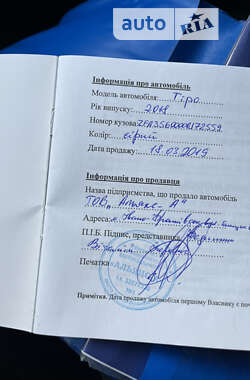 auto RIA
Інформація про автомобіль
Модель автомобіля: Tipo
Рік випуску: 2018
Номер кузова: ZFA35600006K72552
Колір: сірий
Дата продажу: 18.03.2019
Інформація про продавця
Назва підприємства, що продало автомобіль
ТОВ „Альянс - А"
Адреса: м.
П.І.Б. Підпис, представника
Печатка
Примітка. Дата продажу автомобіля першому Власнику є поч